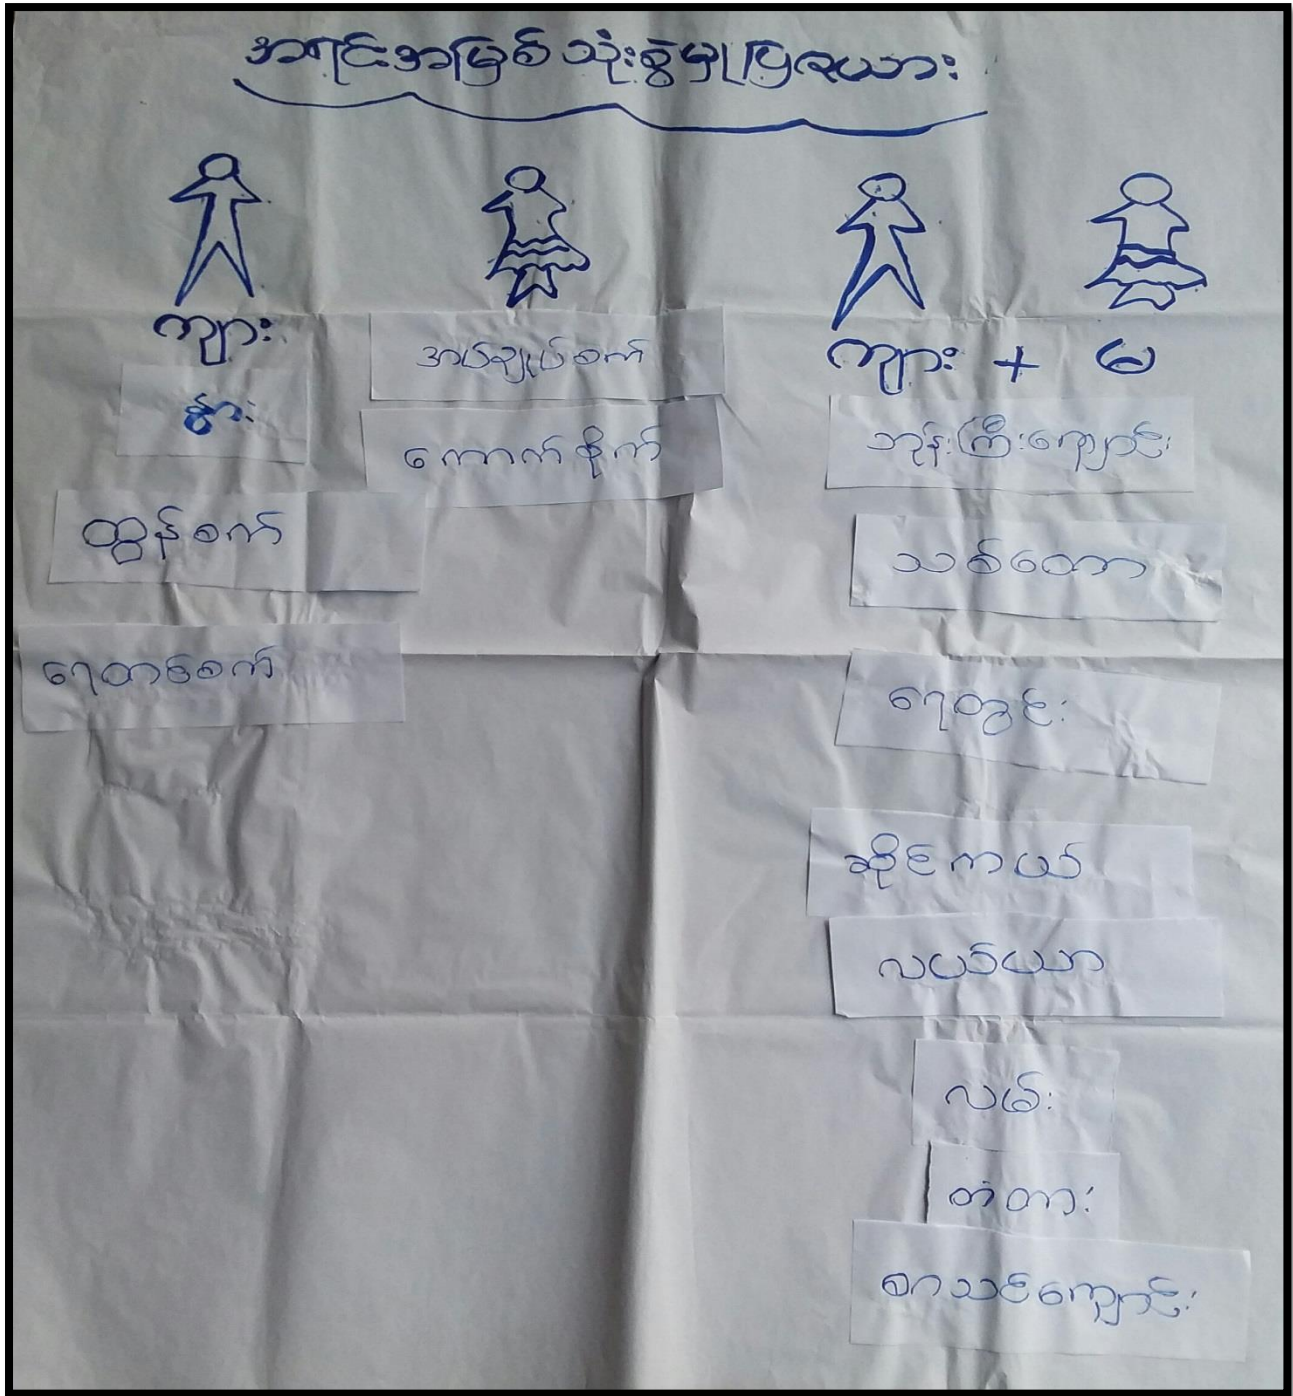 အရင်းအမြစ်သုံးစွဲမှုပြဇယား
ကျား
နွား
ထွန်စက်
ရေတင်စက်
အပ်ချုပ်စက်
ကောက်စိုက်
ကျား + မ
ဘုန်းကြီးကျောင်း
သစ်တော
ရေတွင်း
ဆိုင်ကယ်
လယ်ယာ
လမ်း
တံတား
စာသင်ကျောင်း